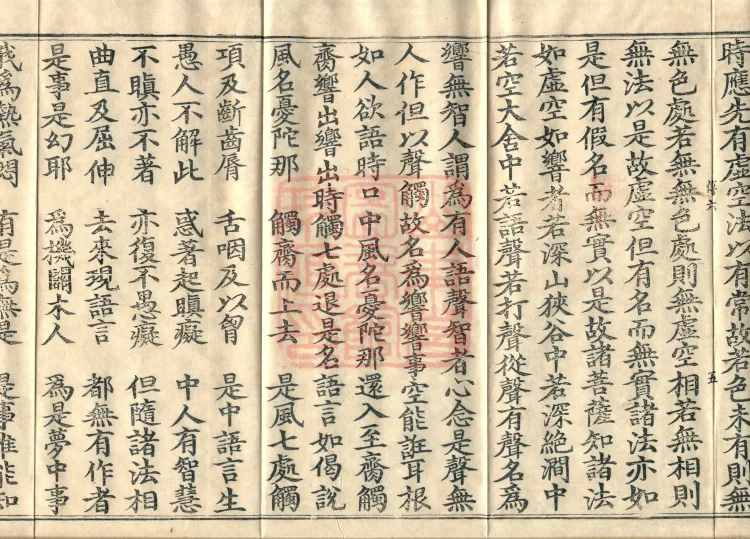 時應先有虛空法以有常故若色未有則無
無色處若無無色處則無虛空相若無相則
傅六
五
無法以是故虛空但有名而無實諸法亦如
是但有假名而無實以是故諸菩薩知諸法
如虛空如響者若深山狹谷中若深絕澗中
若空大舍中若語聲若打聲從聲有聲名爲
響無智人謂爲有人語聲智者心念是聲無
人作但以聲觸故名爲響響事空能誑耳根
如人欲語時口中風名憂陀那還入至齎觸
齎響出響出時觸七處退是名語言如偈說
風名憂陀那 觸齎而上去 是風七處觸
項及齗齒脣 舌咽及以胷 是中語言生
愚人不解此 惑著起瞋癡 中人有智慧
不瞋亦不著 亦復不愚癡 但隨諸法相
曲直及屈伸 去來現語言 都無有作者
是事是幻耶 爲機關木人 爲是夢中事
我爲熱氣悶 有是爲無是 是事誰能知